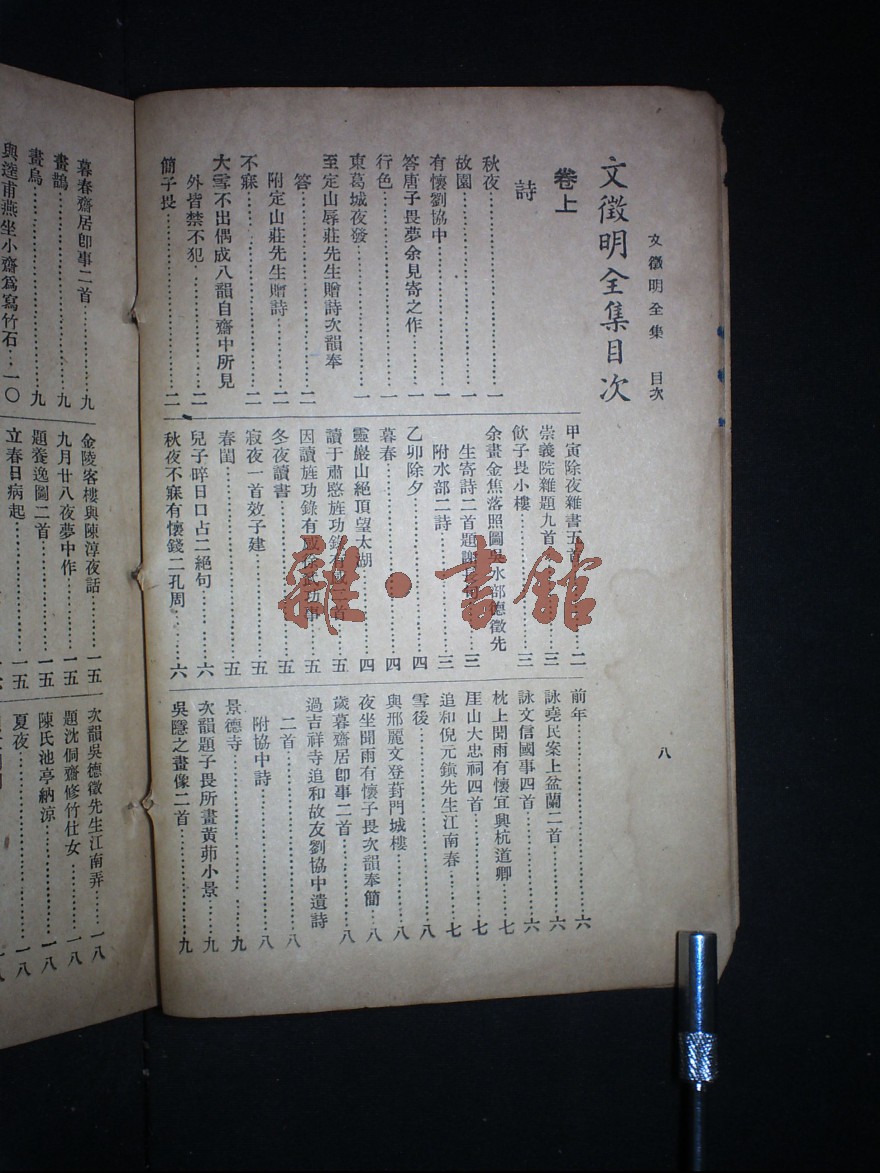 文徵明全集 目次
八
文徵明全集目次
卷上
詩
秋夜⋯⋯一
故園⋯⋯一
有懷劉協中⋯⋯一
答唐子畏夢余見寄之作⋯⋯一
行色⋯⋯一
東葛城夜發⋯⋯一
至定山辱莊先生贈詩次韻奉
答⋯⋯二
附定山莊先生贈詩⋯⋯二
不寐⋯⋯二
大雪不出偶成八韻自齋中所見
外皆禁不犯⋯⋯二
簡子畏⋯⋯二
甲寅除夜雜書五首⋯⋯二
崇義院雜題九首⋯⋯三
飲子畏小樓⋯⋯三
余畫金焦落照圖吳水部德徵先
生寄詩二首題謝⋯⋯三
附水部二詩⋯⋯三
乙卯除夕⋯⋯四
暮春⋯⋯四
靈巖山絕頂望太湖⋯⋯四
讀于肅愍旌功錄有⋯⋯五
因讀旌功錄有⋯⋯五
冬夜讀書⋯⋯五
寂夜一首效子建⋯⋯五
春閨⋯⋯五
兒子晬日口占二絕句⋯⋯六
秋夜不寐有懷錢二孔周⋯⋯六
前年⋯⋯六
詠堯民案上盆蘭二首⋯⋯六
詠文信國事四首⋯⋯六
枕上聞雨有懷宜興杭道卿⋯⋯七
崖山大忠祠四首⋯⋯七
追和倪元鎮先生江南春⋯⋯七
雪後⋯⋯八
與邢麗文登葑門城樓⋯⋯八
夜坐聞雨有懷子畏次韻奉簡⋯⋯八
歲暮齋居卽事二首⋯⋯八
過吉祥寺追和故友劉協中遺詩
二首⋯⋯八
附協中詩⋯⋯八
景德寺⋯⋯九
次韻題子畏所畫黃茆小景⋯⋯九
吳隱之畫像二首⋯⋯九
暮春齋居卽事二首⋯⋯九
畫鵲⋯⋯九
畫烏⋯⋯九
與逵甫燕坐小齋爲寫竹石⋯⋯一〇
金陵客樓與陳淳夜話⋯⋯一五
九月廿八夜夢中作⋯⋯一五
題養逸圖二首⋯⋯一五
立春日病起⋯⋯一五
次韻吳德徵先生江南弄⋯⋯一八
題沈侗齋修竹仕女⋯⋯一八
陳氏池亭納涼⋯⋯一八
夏夜⋯⋯一八
雜·書館